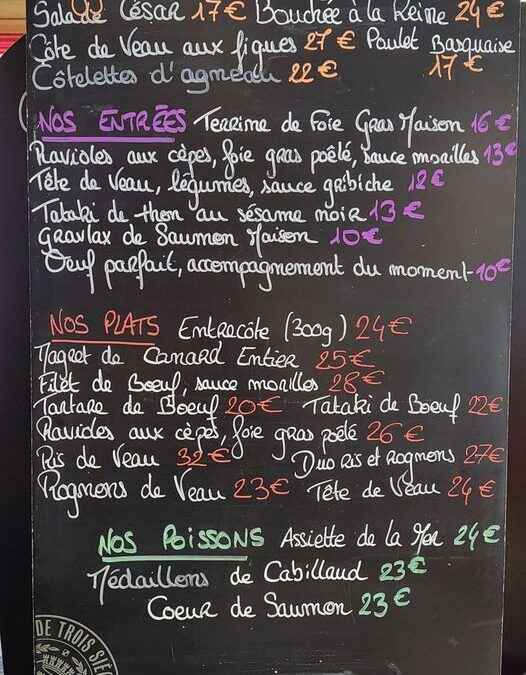 Salade César 17€ Bouchée à la Reine 24€
Côte de Veau aux figues 27€ Poulet Basquaise
Côtelettes d'agneau 22€ 17€
NOS ENTRÉES Terrine de Foie Gras Maison 16€
Ravioles aux cèpes, foie gras poêlé, sauce morilles 13€
Tête de Veau, légumes, sauce gribiche 12€
Tataki de thon au sésame noir 13€
Gravlax de Saumon Maison 10€
Oeuf parfait, accompagnement du moment - 10€
NOS PLATS Entrecôte (300g) 24€
Magret de Canard Entier 25€
Filet de Boeuf, sauce morilles 28€
Tartare de Boeuf 20€ Tataki de Boeuf 22€
Ravioles aux cèpes, foie gras poêlé 26€
Ris de Veau 32€ Duo Ris et Rognons 27€
Rognons de Veau 23€ Tête de Veau 24€
NOS POISSONS Assiette de la Mer 24€
Médaillons de Cabillaud 23€
Coeur de Saumon 23€
DE TROIS